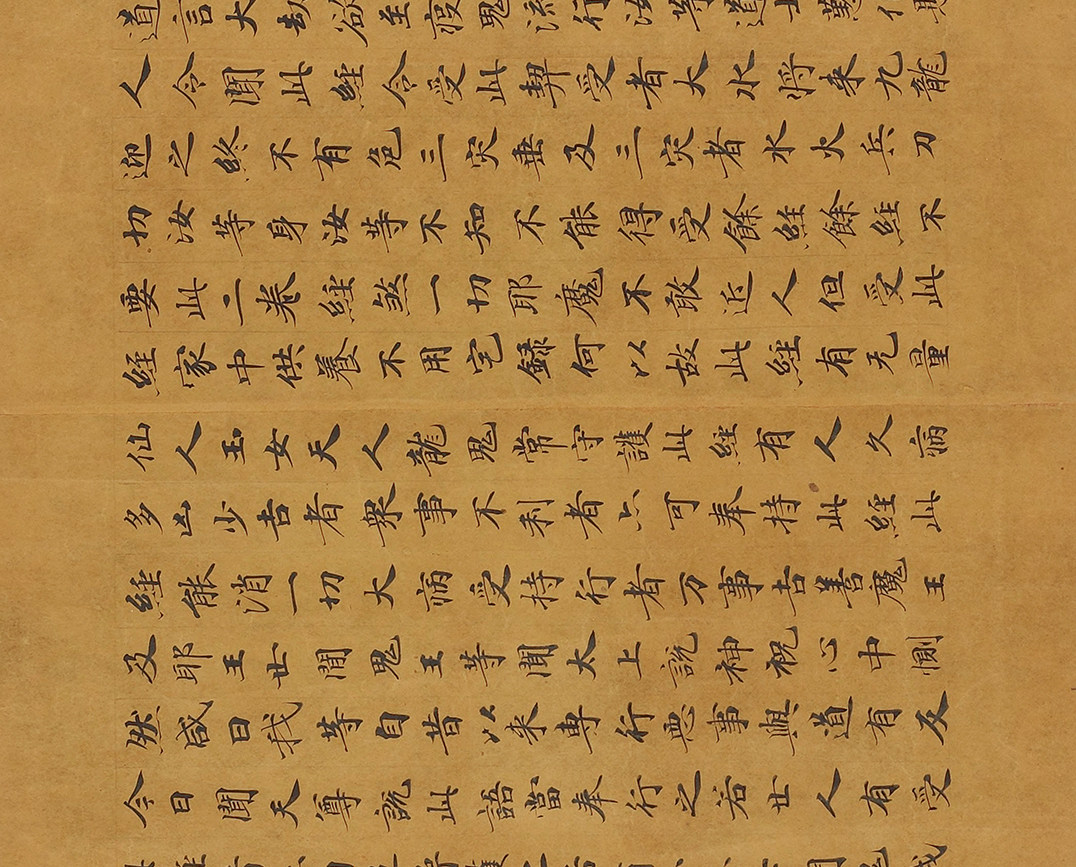 道言大劫欲至疫鬼流行汝等道士
人令聞此經令受此契受者大水將来九龍
迎之終不有危三灾垂及三灾者水火兵刀
切汝等身汝等不知不能得受餘經餘經不
要此二卷經煞一切耶魔不敢近人但受此
經家中供養不用宅録何以故此經有无量
仙人玉女天人龍鬼常守護此經有人久病
多凶少吉者衆事不利者亦可奉持此經此
經能消一切大病受持行者万事吉善魔王
及耶王世間鬼王等聞太上說神祝心中惻
然咸曰我等自昔以来專行惡事與道有反
今日聞天尊說此語當奉行之若世人有受